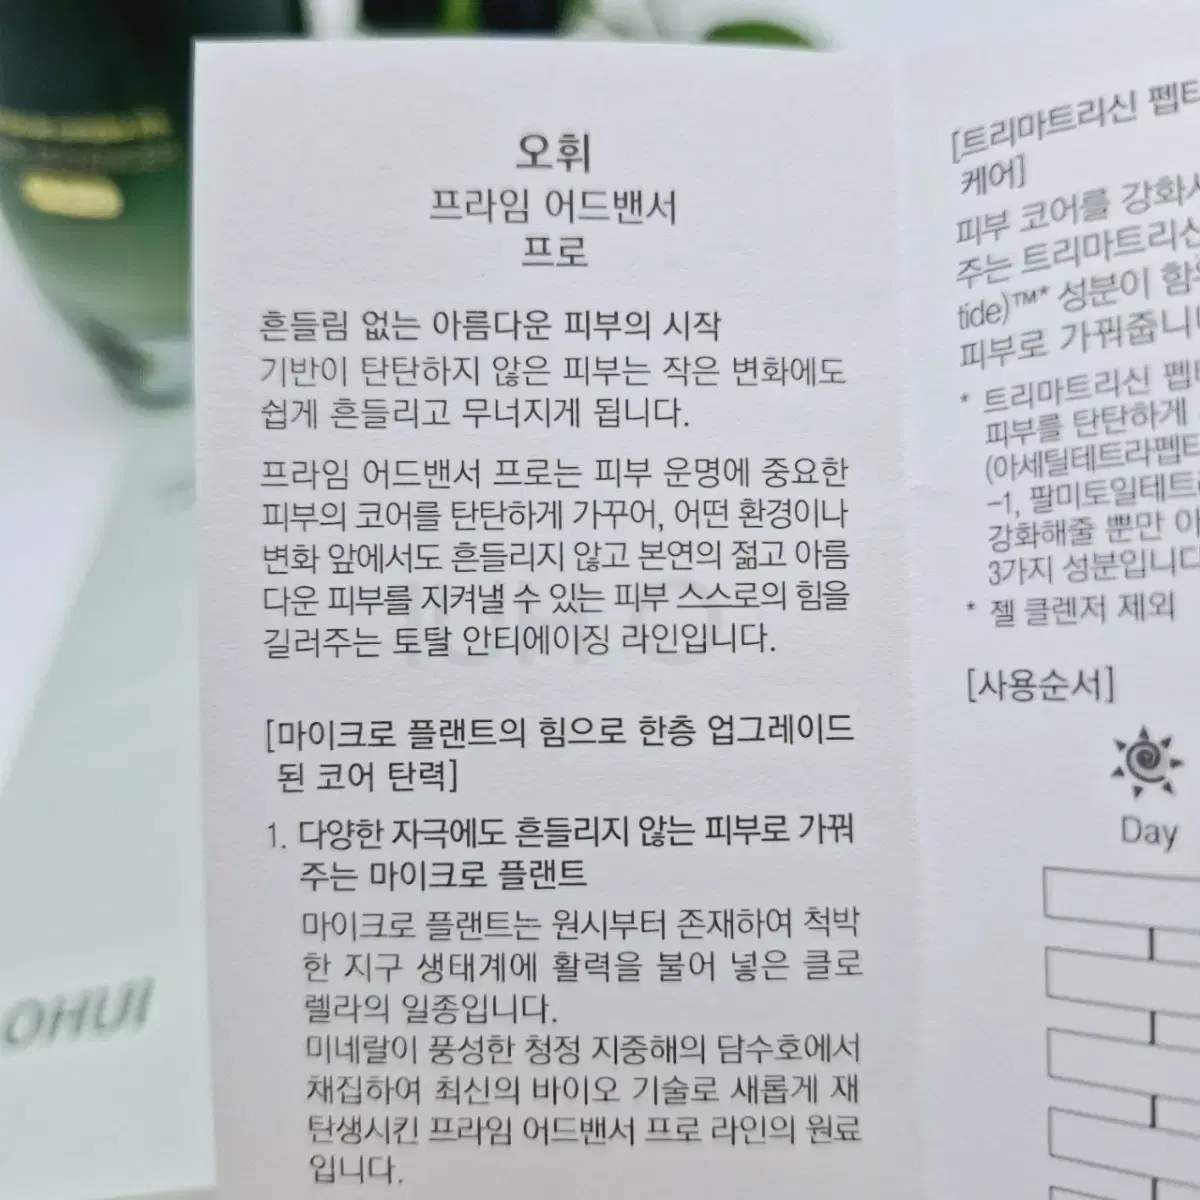 오휘
프라임 어드밴서
프로
흔들림 없는 아름다운 피부의 시작
기반이 탄탄하지 않은 피부는 작은 변화에도
쉽게 흔들리고 무너지게 됩니다.
프라임 어드밴서 프로는 피부 운명에 중요한
피부의 코어를 탄탄하게 가꾸어, 어떤 환경이나
변화 앞에서도 흔들리지 않고 본연의 젊고 아름
다운 피부를 지켜낼 수 있는 피부 스스로의 힘을
길러주는 토탈 안티에이징 라인입니다.
[마이크로 플랜트의 힘으로 한층 업그레이드
된 코어 탄력]
1. 다양한 자극에도 흔들리지 않는 피부로 가꿔
주는 마이크로 플랜트
마이크로 플랜트는 원시부터 존재하여 척박
한 지구 생태계에 활력을 불어 넣은 클로
렐라의 일종입니다.
미네랄이 풍성한 청정 지중해의 담수호에서
채집하여 최신의 바이오 기술로 새롭게 재
탄생시킨 프라임 어드밴서 프로 라인의 원료
입니다.
[트리마트리신 펩
케어]
피부 코어를 강화
주는 트리마트리신
tide)™* 성분이 함
피부로 가꿔줍니
* 트리마트리신 펩
피부를 탄탄하게
(아세틸테트라펩
-1, 팔미토일테트
강화해줄 뿐만 아
3가지 성분입니다
* 젤 클렌저 제외
[사용순서]
Day
OHUI